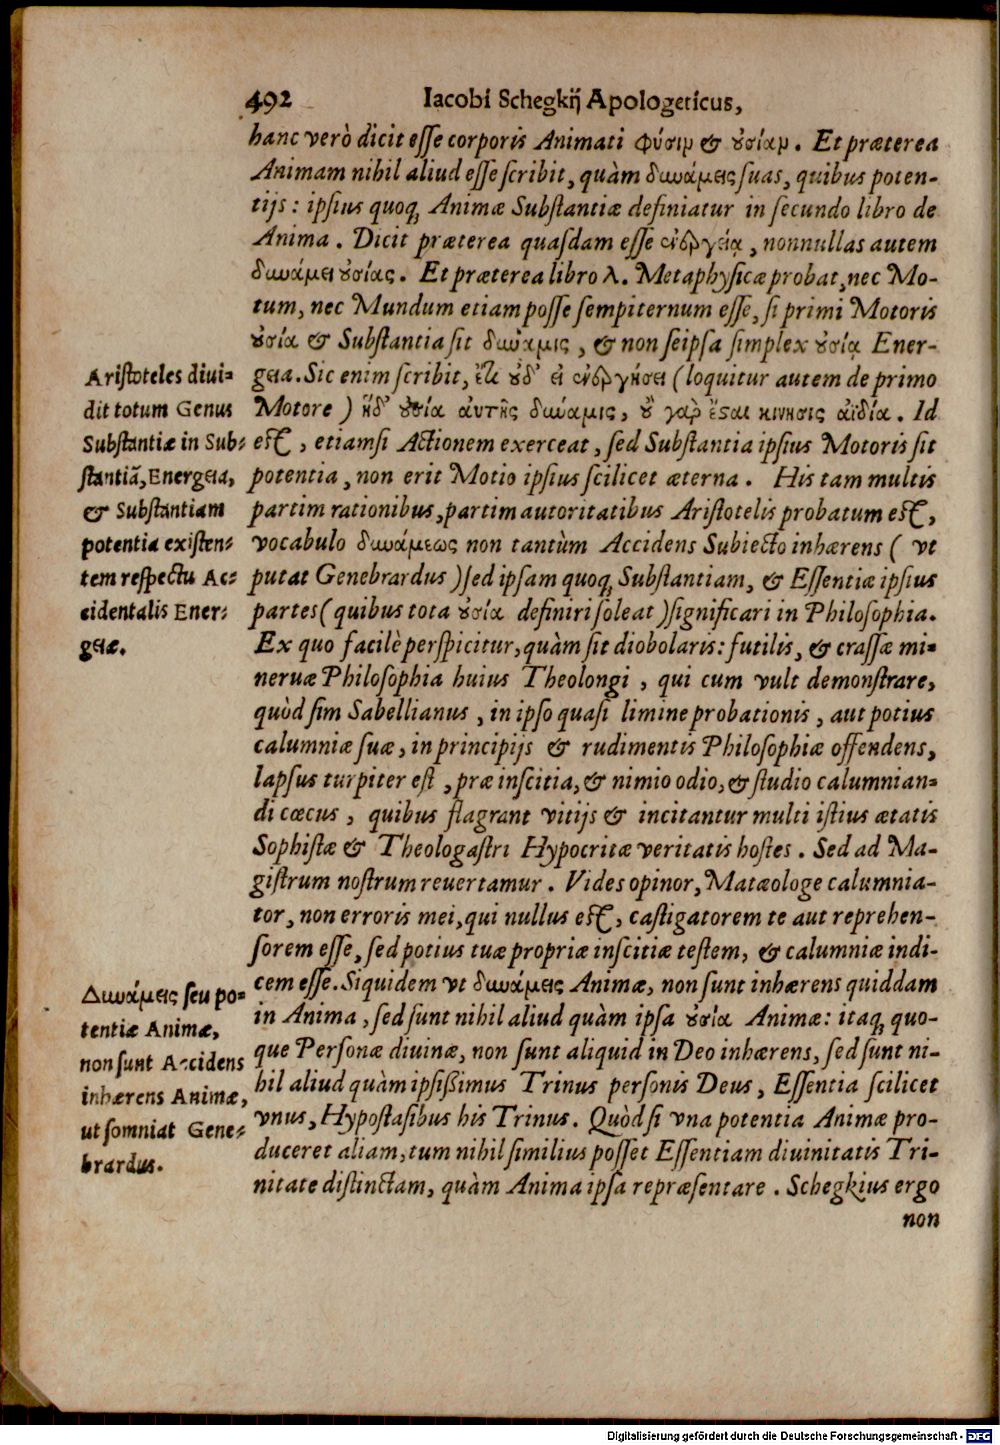 492 Iacobi Schegkij Apologeticus,
hanc verò dicit esse corporis Animati φύσιμ & ȣσίαμ. Et præterea
Animam nihil aliud esse scribit, quàm δυνάμεις suas, quibus poten-
tijs: ipsius quoq; Animæ Substantiæ definiatur in secundo libro de
Anima. Dicit præterea quasdam esse ἐνεργείᾳ, nonnullas autem
δυνάμει ȣσίας. Et præterea libro λ. Metaphysicæ probat, nec Mo-
tum, nec Mundum etiam posse sempiternum esse, si primi Motoris
ȣσία & Substantia sit δύναμις, & non seipsa simplex ȣσίᾳ Ener-
geia. Sic enim scribit, ἔτι ȣδ' εἰ ἐνεργήσει (loquitur autem de primo
Motore) ἡδ' ȣσία αὐτῆς δύναμις, ȣ γαρ ἔσαι κινησις αἰδία. Id
est, etiamsi Actionem exerceat, sed Substantia ipsius Motoris sit
potentia, non erit Motio ipsius scilicet æterna. His tam multis
partim rationibus, partim autoritatibus Aristotelis probatum est,
vocabulo δυνάμεως non tantùm Accidens Subiecto inhærens (vt
putat Genebrardus) sed ipsam quoq; Substantiam, & Essentiæ ipsius
partes (quibus tota ȣσία definiri soleat) significari in Philosophia.
Ex quo facilè perspicitur, quàm sit diobolaris: futilis, & crassæ mi-
neruæ Philosophia huius Theolongi, qui cum vult demonstrare,
quòd sim Sabellianus, in ipso quasi limine probationis, aut potius
calumniæ suæ, in principijs & rudimentis Philosophiæ offendens,
lapsus turpiter est, præ inscitia, & nimio odio, & studio calumnian-
di cæcus, quibus flagrant vitijs & incitantur multi istius ætatis
Sophistæ & Theologastri Hypocritæ veritatis hostes. Sed ad Ma-
gistrum nostrum reuertamur. Vides opinor, Matæologe calumnia-
tor, non erroris mei, qui nullus est, castigatorem te aut reprehen-
sorem esse, sed potius tuæ propriæ inscitiæ testem, & calumniæ indi-
cem esse. Siquidem vt δυνάμεις Animæ, non sunt inhærens quiddam
in Anima, sed sunt nihil aliud quàm ipsa ȣσία Animæ: itaq; quo-
que Personæ diuinæ, non sunt aliquid in Deo inhærens, sed sunt ni-
hil aliud quàm ipsißimus Trinus personis Deus, Essentia scilicet
vnus, Hypostasibus his Trinus. Quòd si vna potentia Animæ pro-
duceret aliam, tum nihil similius posset Essentiam diuinitatis Tri-
nitate distinctam, quàm Anima ipsa repræsentare. Schegkius ergo
non
Aristoteles diui-
dit totum Genus
Substantiæ in Sub-
stantiã, Energeia,
& Substantiam
potentia existen-
tem respectu Ac-
cidentalis Ener-
geiæ.
Δυνάμεις seu po-
tentiæ Animæ,
non sunt Accidens
inhærens Animæ,
ut somniat Gene-
brardus.
Digitalisierung gefördert durch die Deutsche Forschungsgemeinschaft - DFG